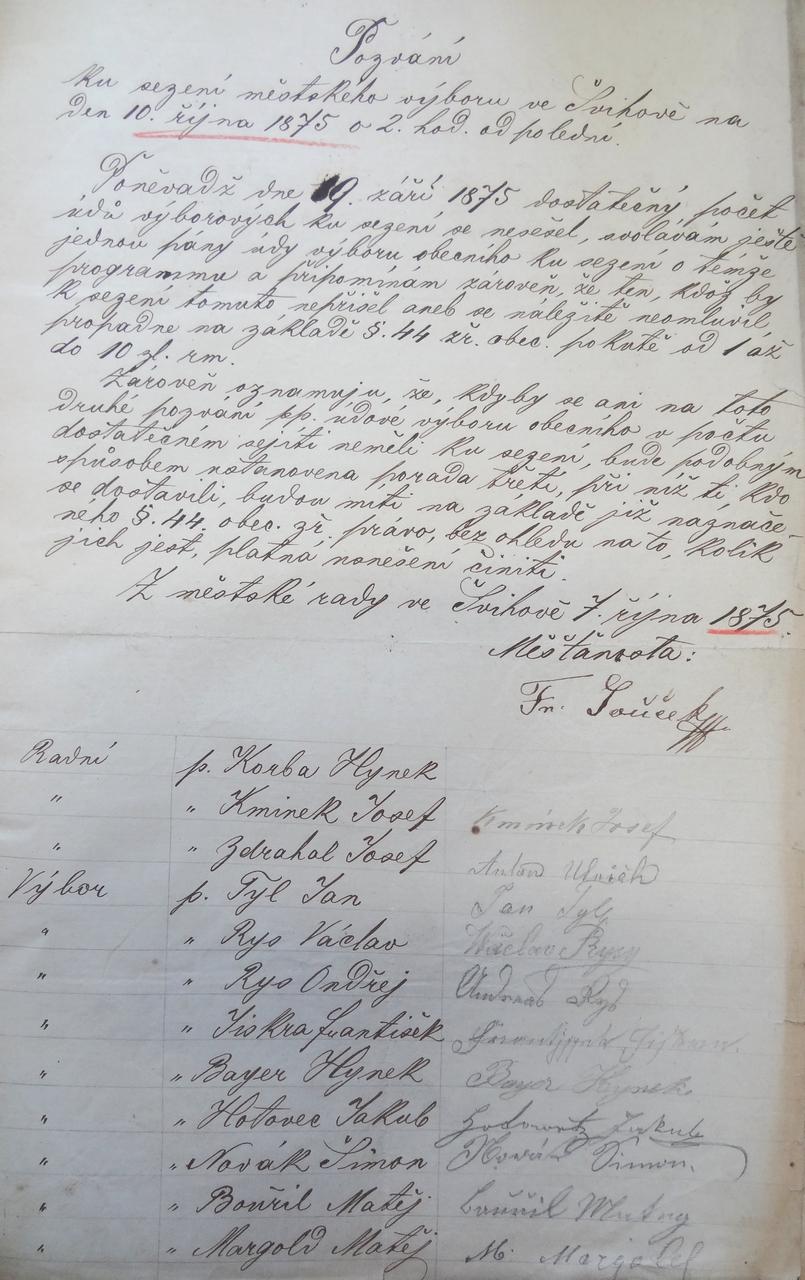 Pozvání
ku sezení městského výboru ve Švihově na
den 10. října 1875 o 2. hod. odpolední.
Poněvadž dne 19. září 1875 dostatečný počet
údů výborových ku sezení se nesešel, svolávám ještě
jednou pány údy výboru obecního ku sezení o témže
programmu a připomínám zároveň, že ten, kdož by
k sezení tomuto nepřišel aneb se náležitě neomluvil,
propadne na základě §. 44 zř. obec. pokutě od 1 až
do 10 zl. rm.
Zároveň oznamuju, že, kdyby se ani na toto
druhé pozvání pp. údové výboru obecního v počtu
dostatečném sejíti neměli ku sezení, bude podobným
spůsobem ustanovena porada třetí, při níž ti kdo
se dostavili, budou míti na základě již naznače-
ného §. 44. obec. zř. právo, bez ohledu na to, kolik
jich jest, platná usnešení činiti.
Z městské rady ve Švihově 7. října 1875.
Měšťanosta:
Fr. Souček
Radní p. Korba Hynek
" " Kminek Josef Kminek Josef
" " Zdrahal Josef Anton Ulrich
Výbor p. Tyl Jan Jan Tyl
" " Rys Václav Václav Rysy
" " Rys Ondřej Andreas Rys
" " Jiskra František
" " Bayer Hynek Bayer Hynek
" " Hotovec Jakub Hotowetz Jakub
" " Novák Šimon Novák Simon
" " Bouřil Matěj Bouřil
" " Margold Matěj M. Margold